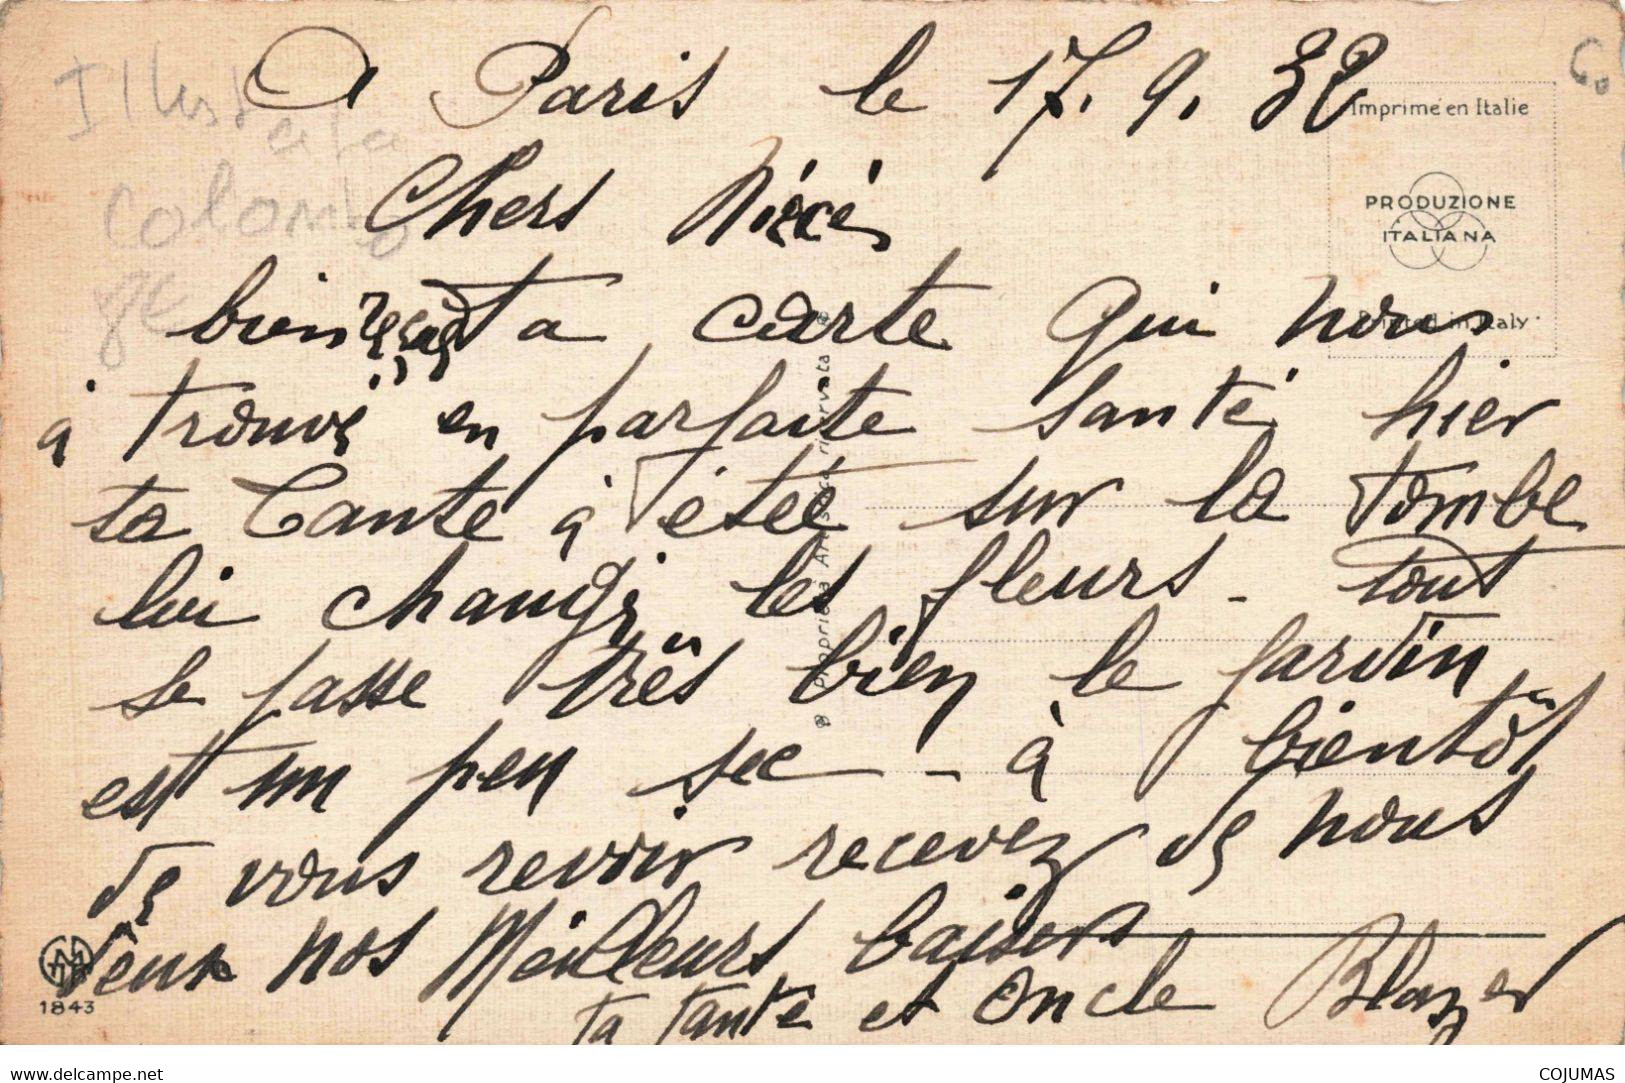 A Paris le 17. 9. 32
Imprimé en Italie
Illust
Chers Niéce,
PRODUZIONE
ITALIANA
Colombo
bien reçus ta carte qui nous
Printed in Italy
à trouvé en parfaite santé, hier
ta Tante à étée sur la tombe
lui changé les fleurs - tout
se passe très bien le jardin
est un peu sec - à bientôt
de vous revoir recevez de nous
deux nos Meilleurs baisers
ta tante et Oncle Blazer
1843
www.delcampe.net
COJUMAS